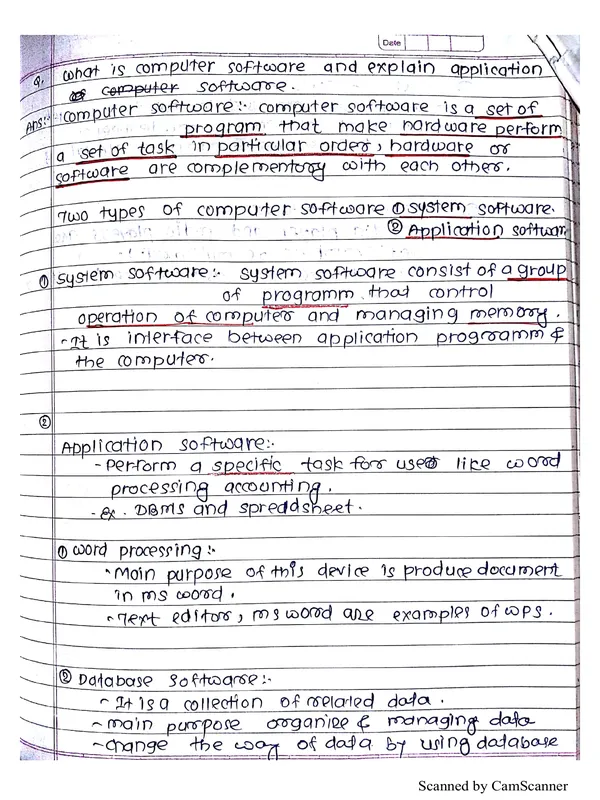 Date
Q. What is computer software and explain application
of computer software.
Ans:- Computer software:- computer software is a set of
program that make hardware perform
a set of task in particular order, hardware or
software are complementory with each other.
Two types of computer software ① System software.
② Application softwar
① System software:- System software consist of a group
of programm that control
operation of computer and managing memory.
- It is interface between application programm &
the computer.
②
Application software:-
- Perform a specific task for user like word
processing accounting.
- ex. DBMS and spreedsheet.
① Word processing:-
- Main purpose of this device is produce document
in ms word.
- Text editor, ms word are examples of WPS.
② Database software:-
- It is a collection of related data.
- main purpose organize & managing data
- change the way of data by using database
Scanned by CamScanner